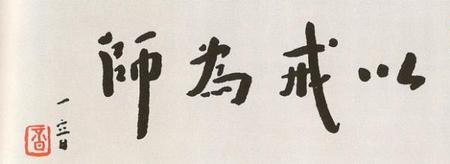 以戒為師
一音